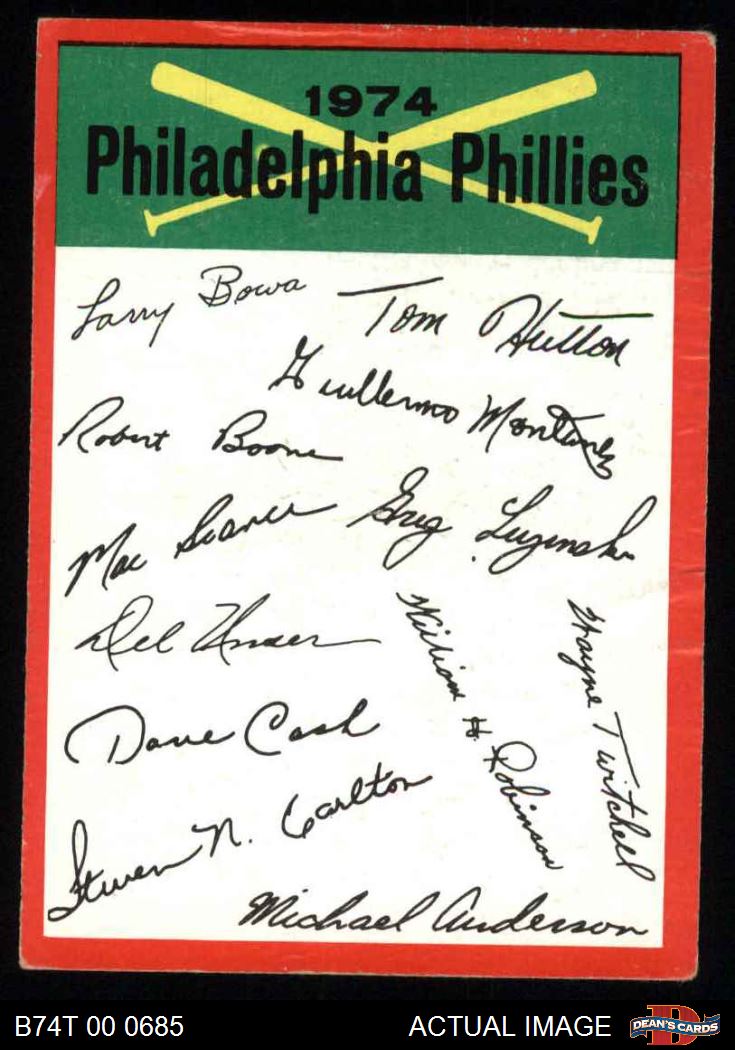 1974
Philadelphia Phillies
Larry Bowa
Tom Hutton
Guillermo Montanez
Robert Boone
Mac Scarce
Greg Luzinski
Del Unser
William H. Robinson
Wayne Twitchell
Dave Cash
Steven N. Carlton
Michael Anderson
B74T 00 0685
ACTUAL IMAGE
DEAN'S CARDS